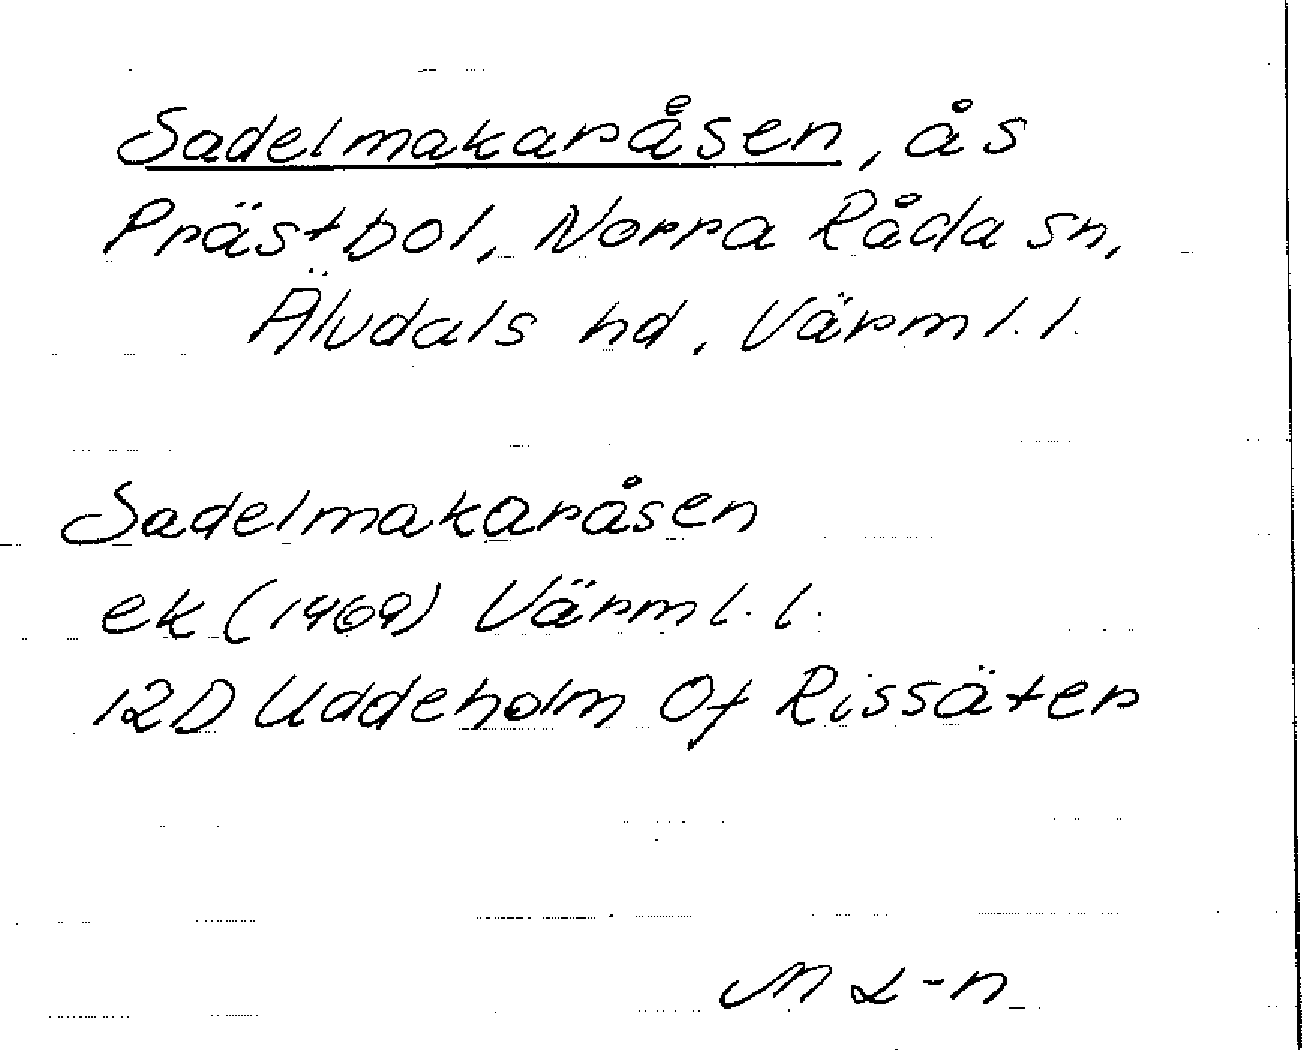 Sadelmakaråsen, ås
Prästbol, Norra Råda sn,
Älvdals hd, Värml. l.
Sadelmakaråsen
ek (1969) Värml. l.
12D Uddeholm Of Rissäter
M L-n